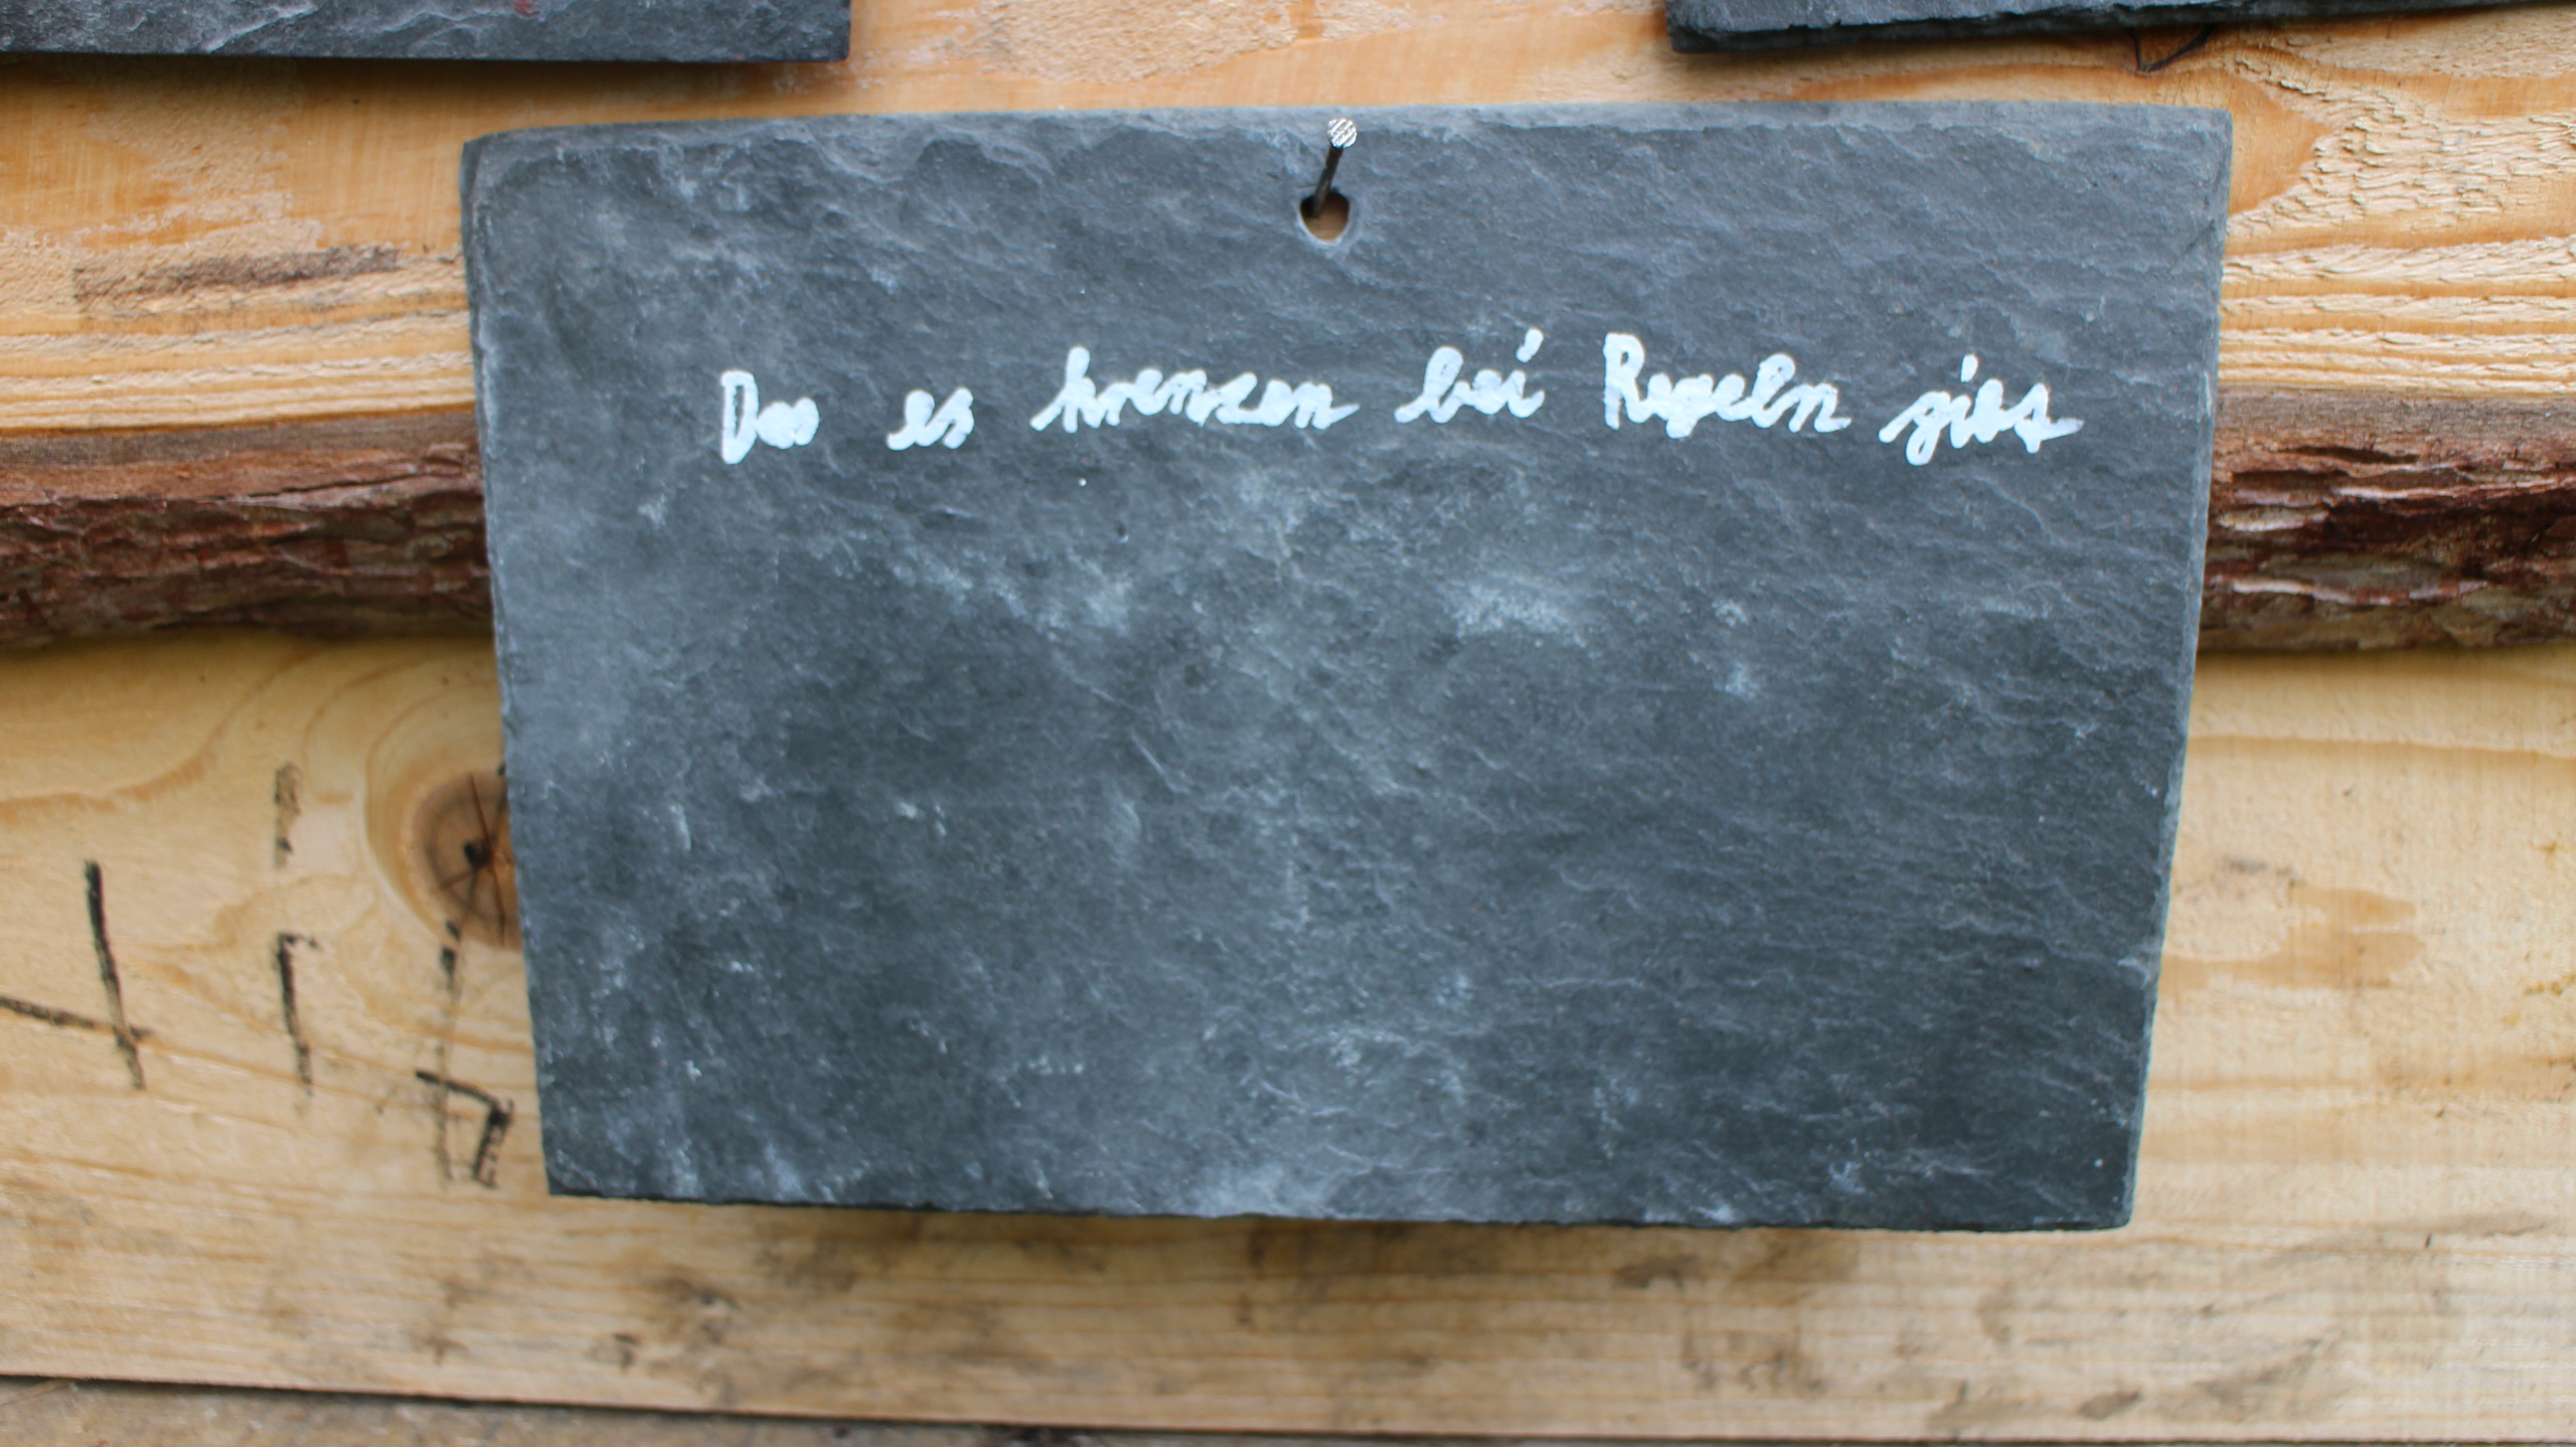 Das es krenzen bei Regeln gibs